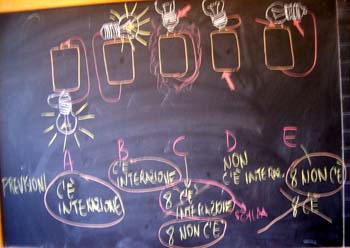 A B C D E
PREVISIONI
C'È
INTERAZIONE
C'È
INTERAZIONE
8 C'È
INTERAZIONE
8 NON C'È
NON
C'È
8 NON C'È
8 C'È